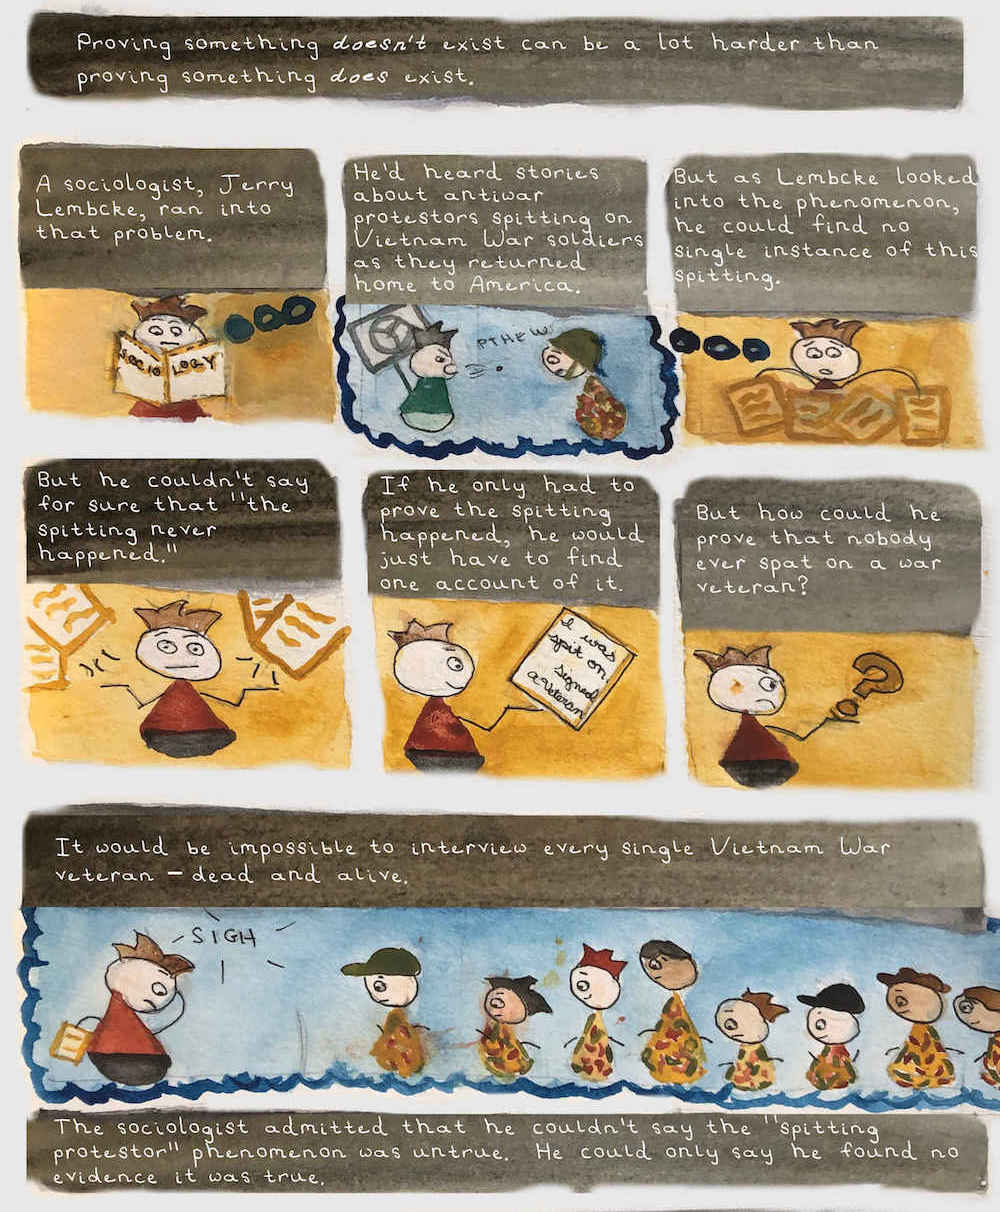 Proving something doesn't exist can be a lot harder than
proving something does exist.
A sociologist, Jerry
Lembcke, ran into
that problem.
SOCIO LOGY
He'd heard stories
about antiwar
protestors spitting on
Vietnam War soldiers
as they returned
home to America.
PTHEW
But as Lembcke looked
into the phenomenon,
he could find no
single instance of this
spitting.
But he couldn't say
for sure that "the
spitting never
happened."
If he only had to
prove the spitting
happened, he would
just have to find
one account of it.
I was
spit on
signed
a veteran
But how could he
prove that nobody
ever spat on a war
veteran?
It would be impossible to interview every single Vietnam War
veteran – dead and alive.
SIGH
The sociologist admitted that he couldn't say the "spitting
protestor" phenomenon was untrue. He could only say he found no
evidence it was true.